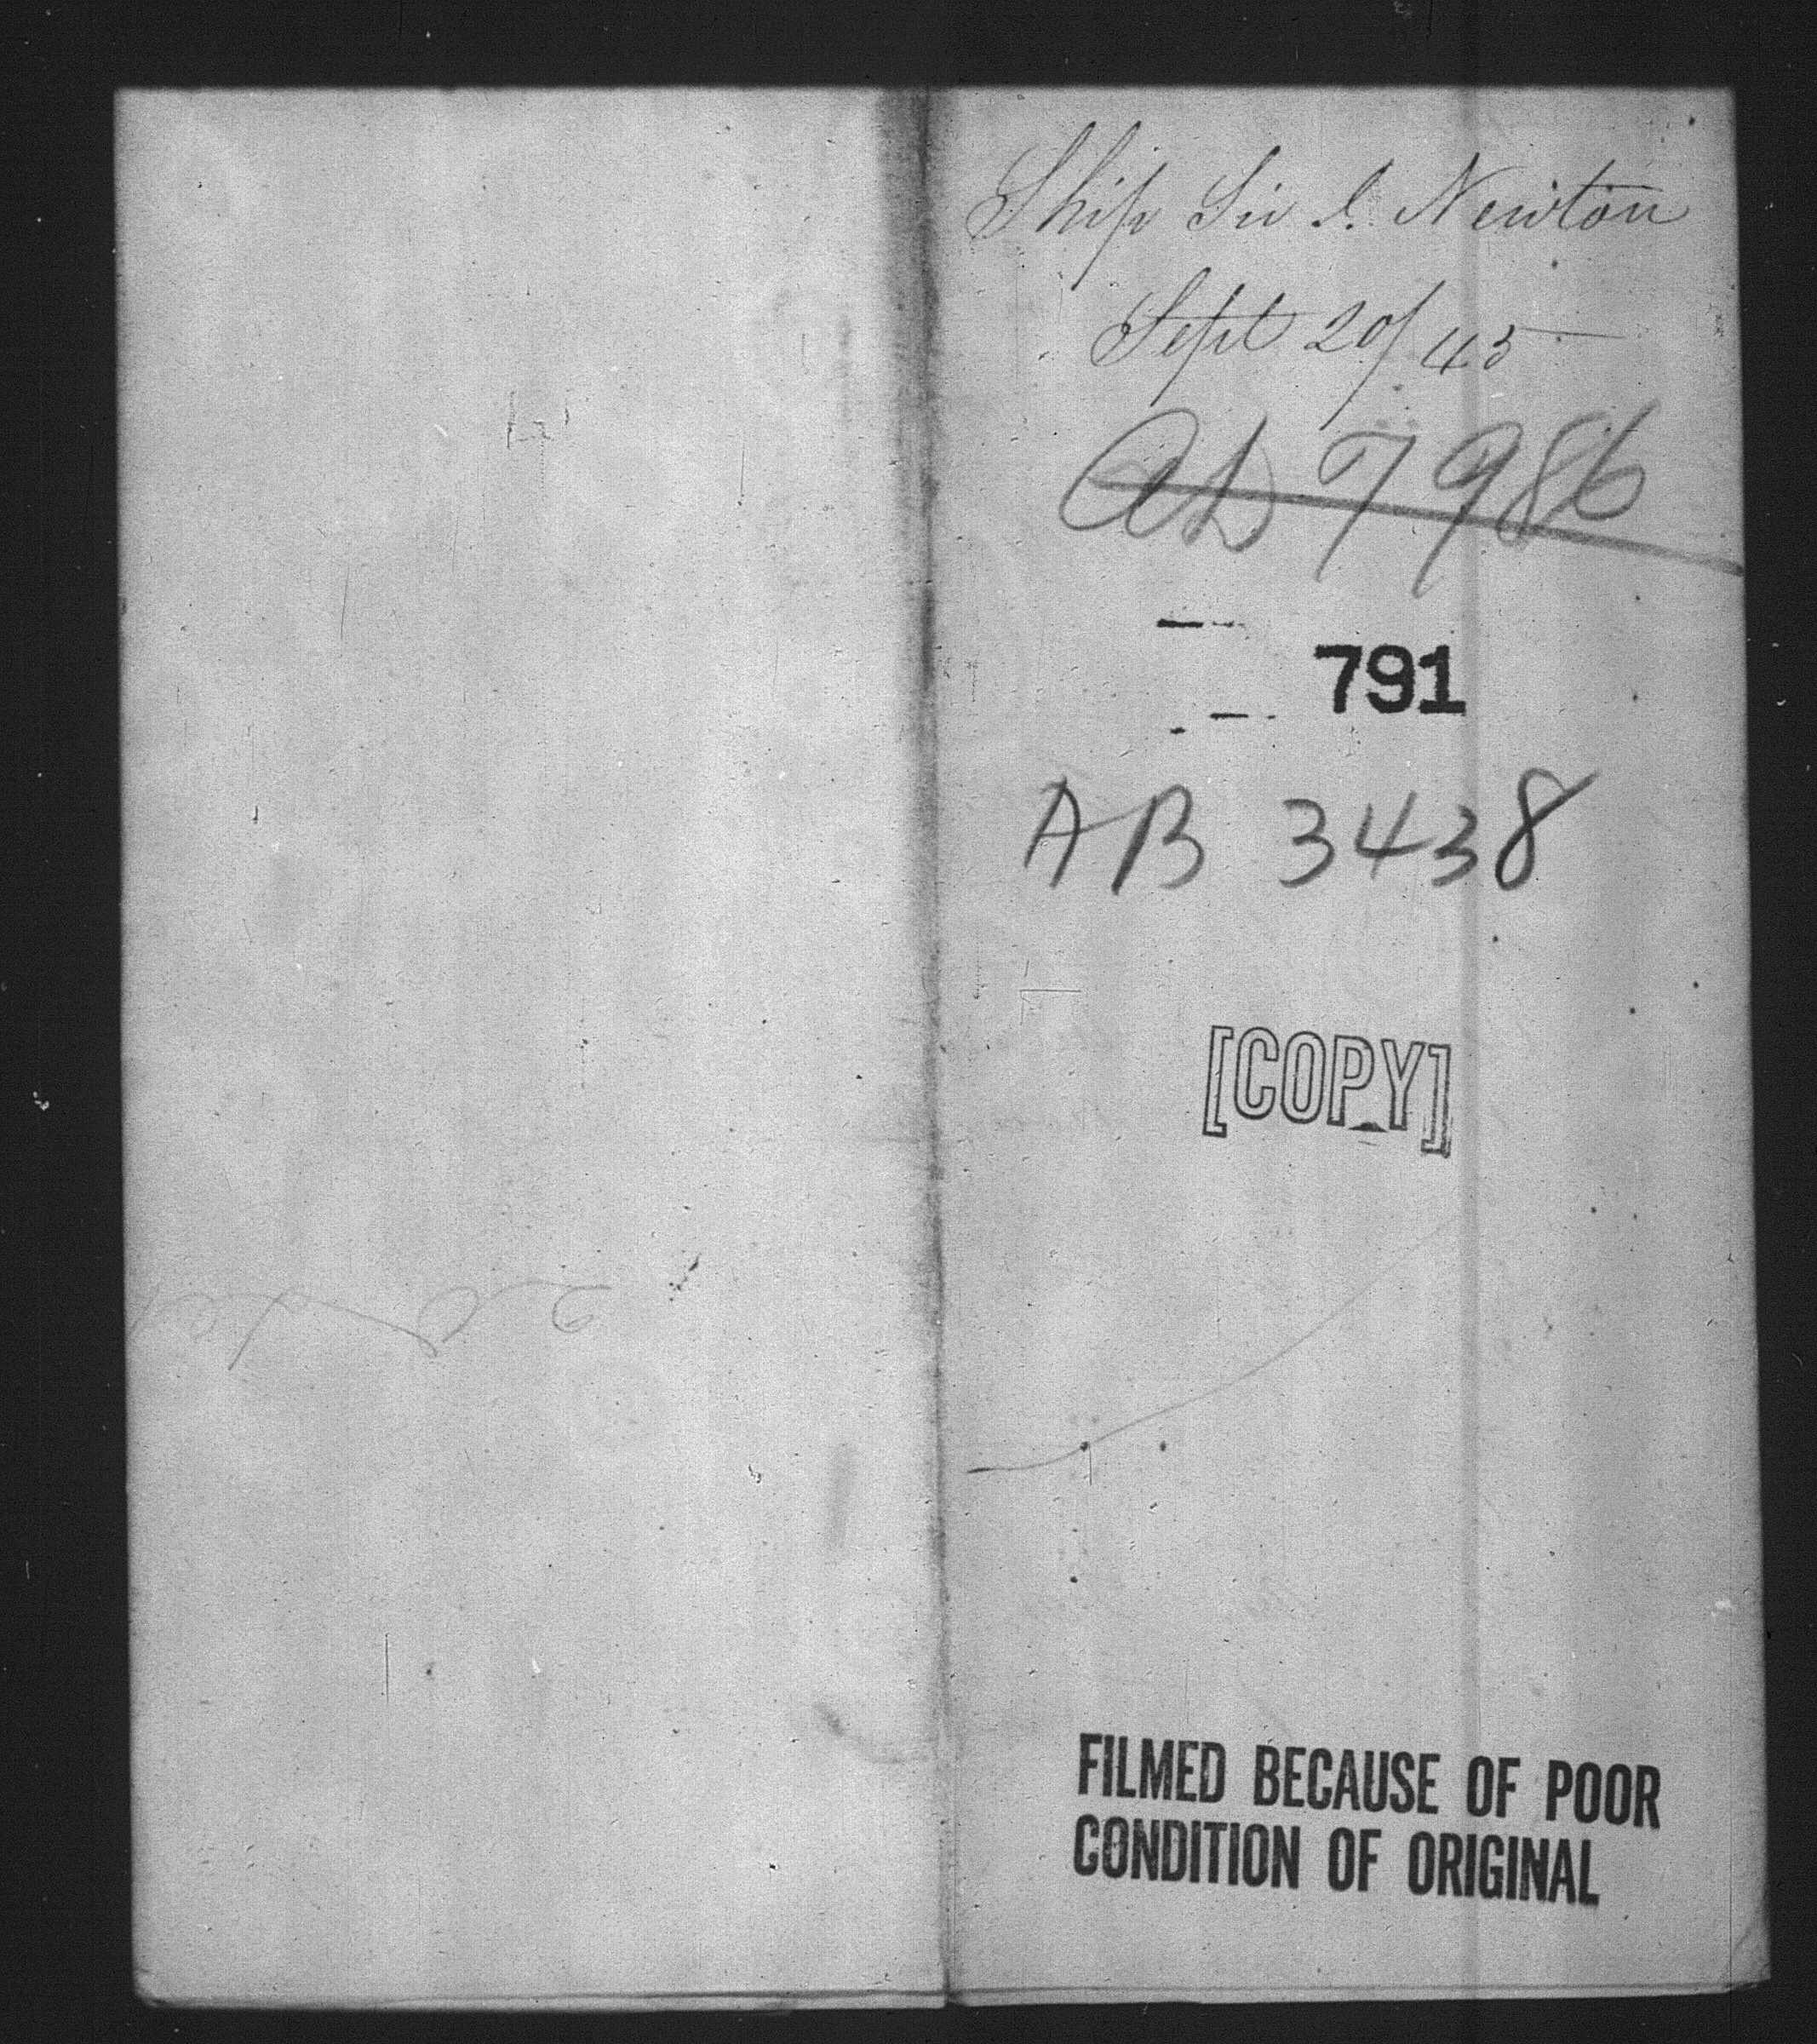 Ship Sir I. Newton
Sept 20/45
AD 7986
791
AB 3438
[COPY]
FILMED BECAUSE OF POOR
CONDITION OF ORIGINAL